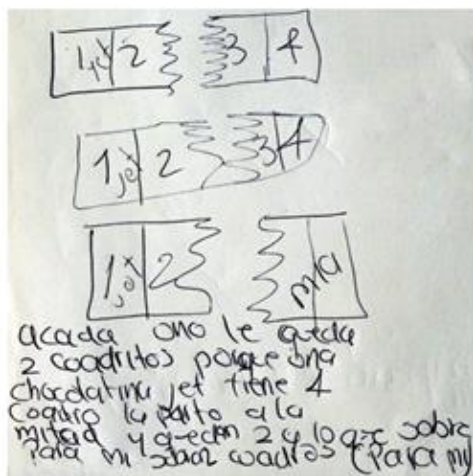 1 jet 2 3 4
1 jet 2 3 4
1 jet 2 mia
acada ono le queda
2 coadritos porque ona
chocolatina jet tiene 4
coadro la parto a la
mitad y quedan 2 y lo que sobre
para mi sobran coadros (para mi